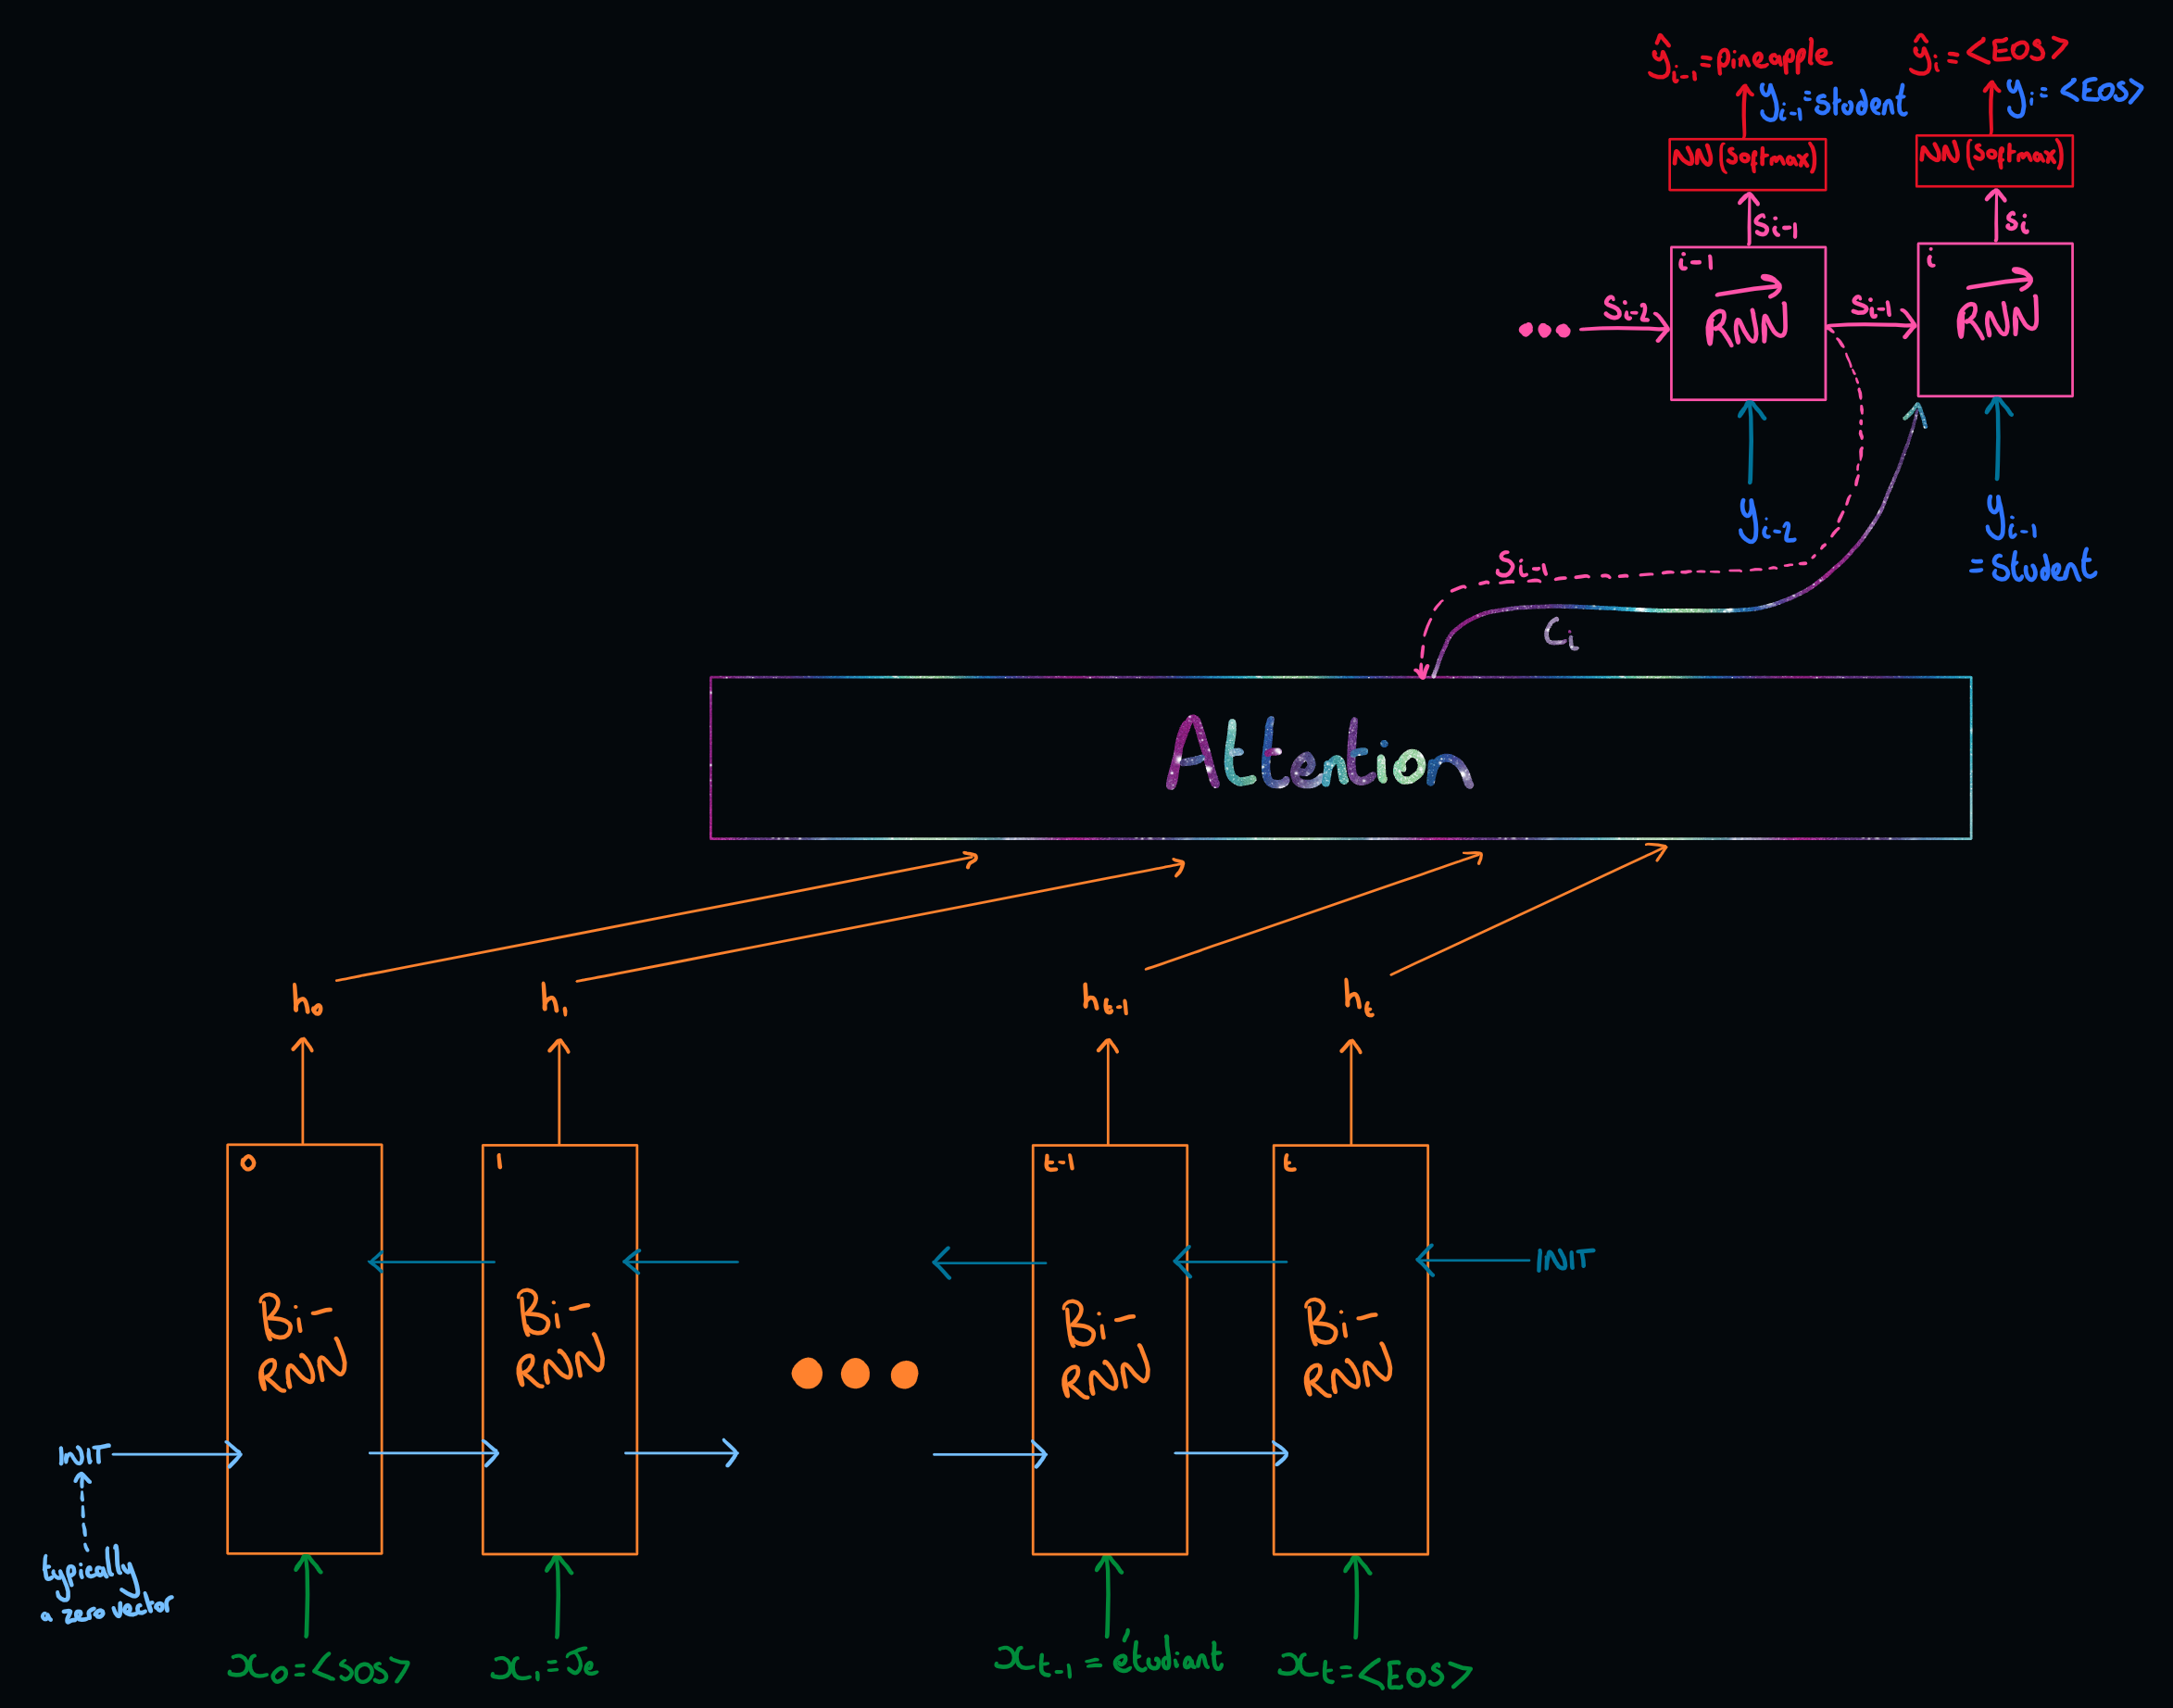 ŷᵢ₋₁=pineapple
ŷᵢ=<EOS>
yᵢ₋₁=student
yᵢ=<EOS>
NN(softmax)
NN(softmax)
sᵢ₋₁
sᵢ
i-1
i
sᵢ₋₂
RNN
sᵢ₋₁
RNN
yᵢ₋₂
yᵢ₋₁
=student
sᵢ₋₁
cᵢ
Attention
h₀
h₁
hₜ₋₁
hₜ
0
1
t-1
t
INIT
Bi-
RNN
Bi-
RNN
Bi-
RNN
Bi-
RNN
INIT
typically
a zero vector
x₀=<SOS>
x₁=Je
xₜ₋₁=étudiant
xₜ=<EOS>